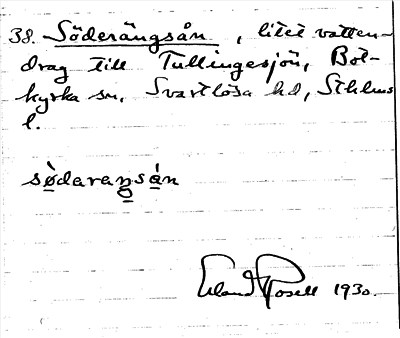 38. Söderängsån, litet vatten-
drag till Tullingesjön, Bot-
kyrka sn, Svartlösa hd, Sthlms
l.
sòdaraŋsán
Erland Rosell 1930.